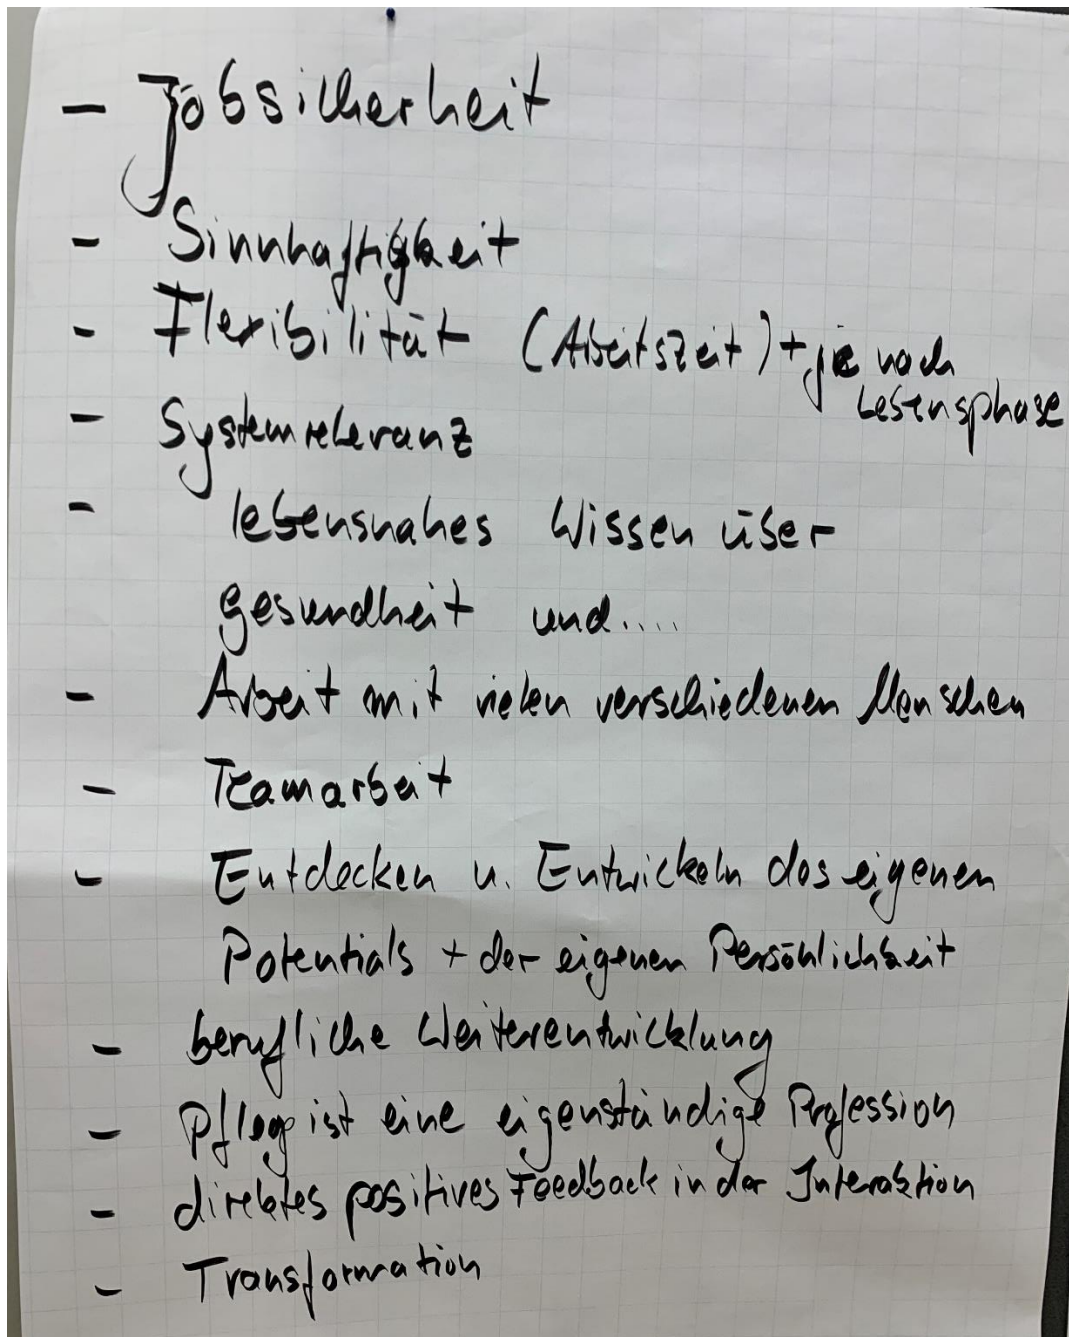 - Jobsicherheit
- Sinnhaftigkeit
- Flexibilität (Arbeitszeit) + je nach
Lebensphase
- Systemrelevanz
- lebensnahes Wissen über
gesundheit und....
- Arbeit mit vielen verschiedenen Menschen
- Teamarbeit
- Entdecken u. Entwickeln des eigenen
Potentials + der eigenen Persönlichkeit
- berufliche Weiterentwicklung
- Pflege ist eine eigenständige Profession
- direktes positives Feedback in der Interaktion
- Transformation